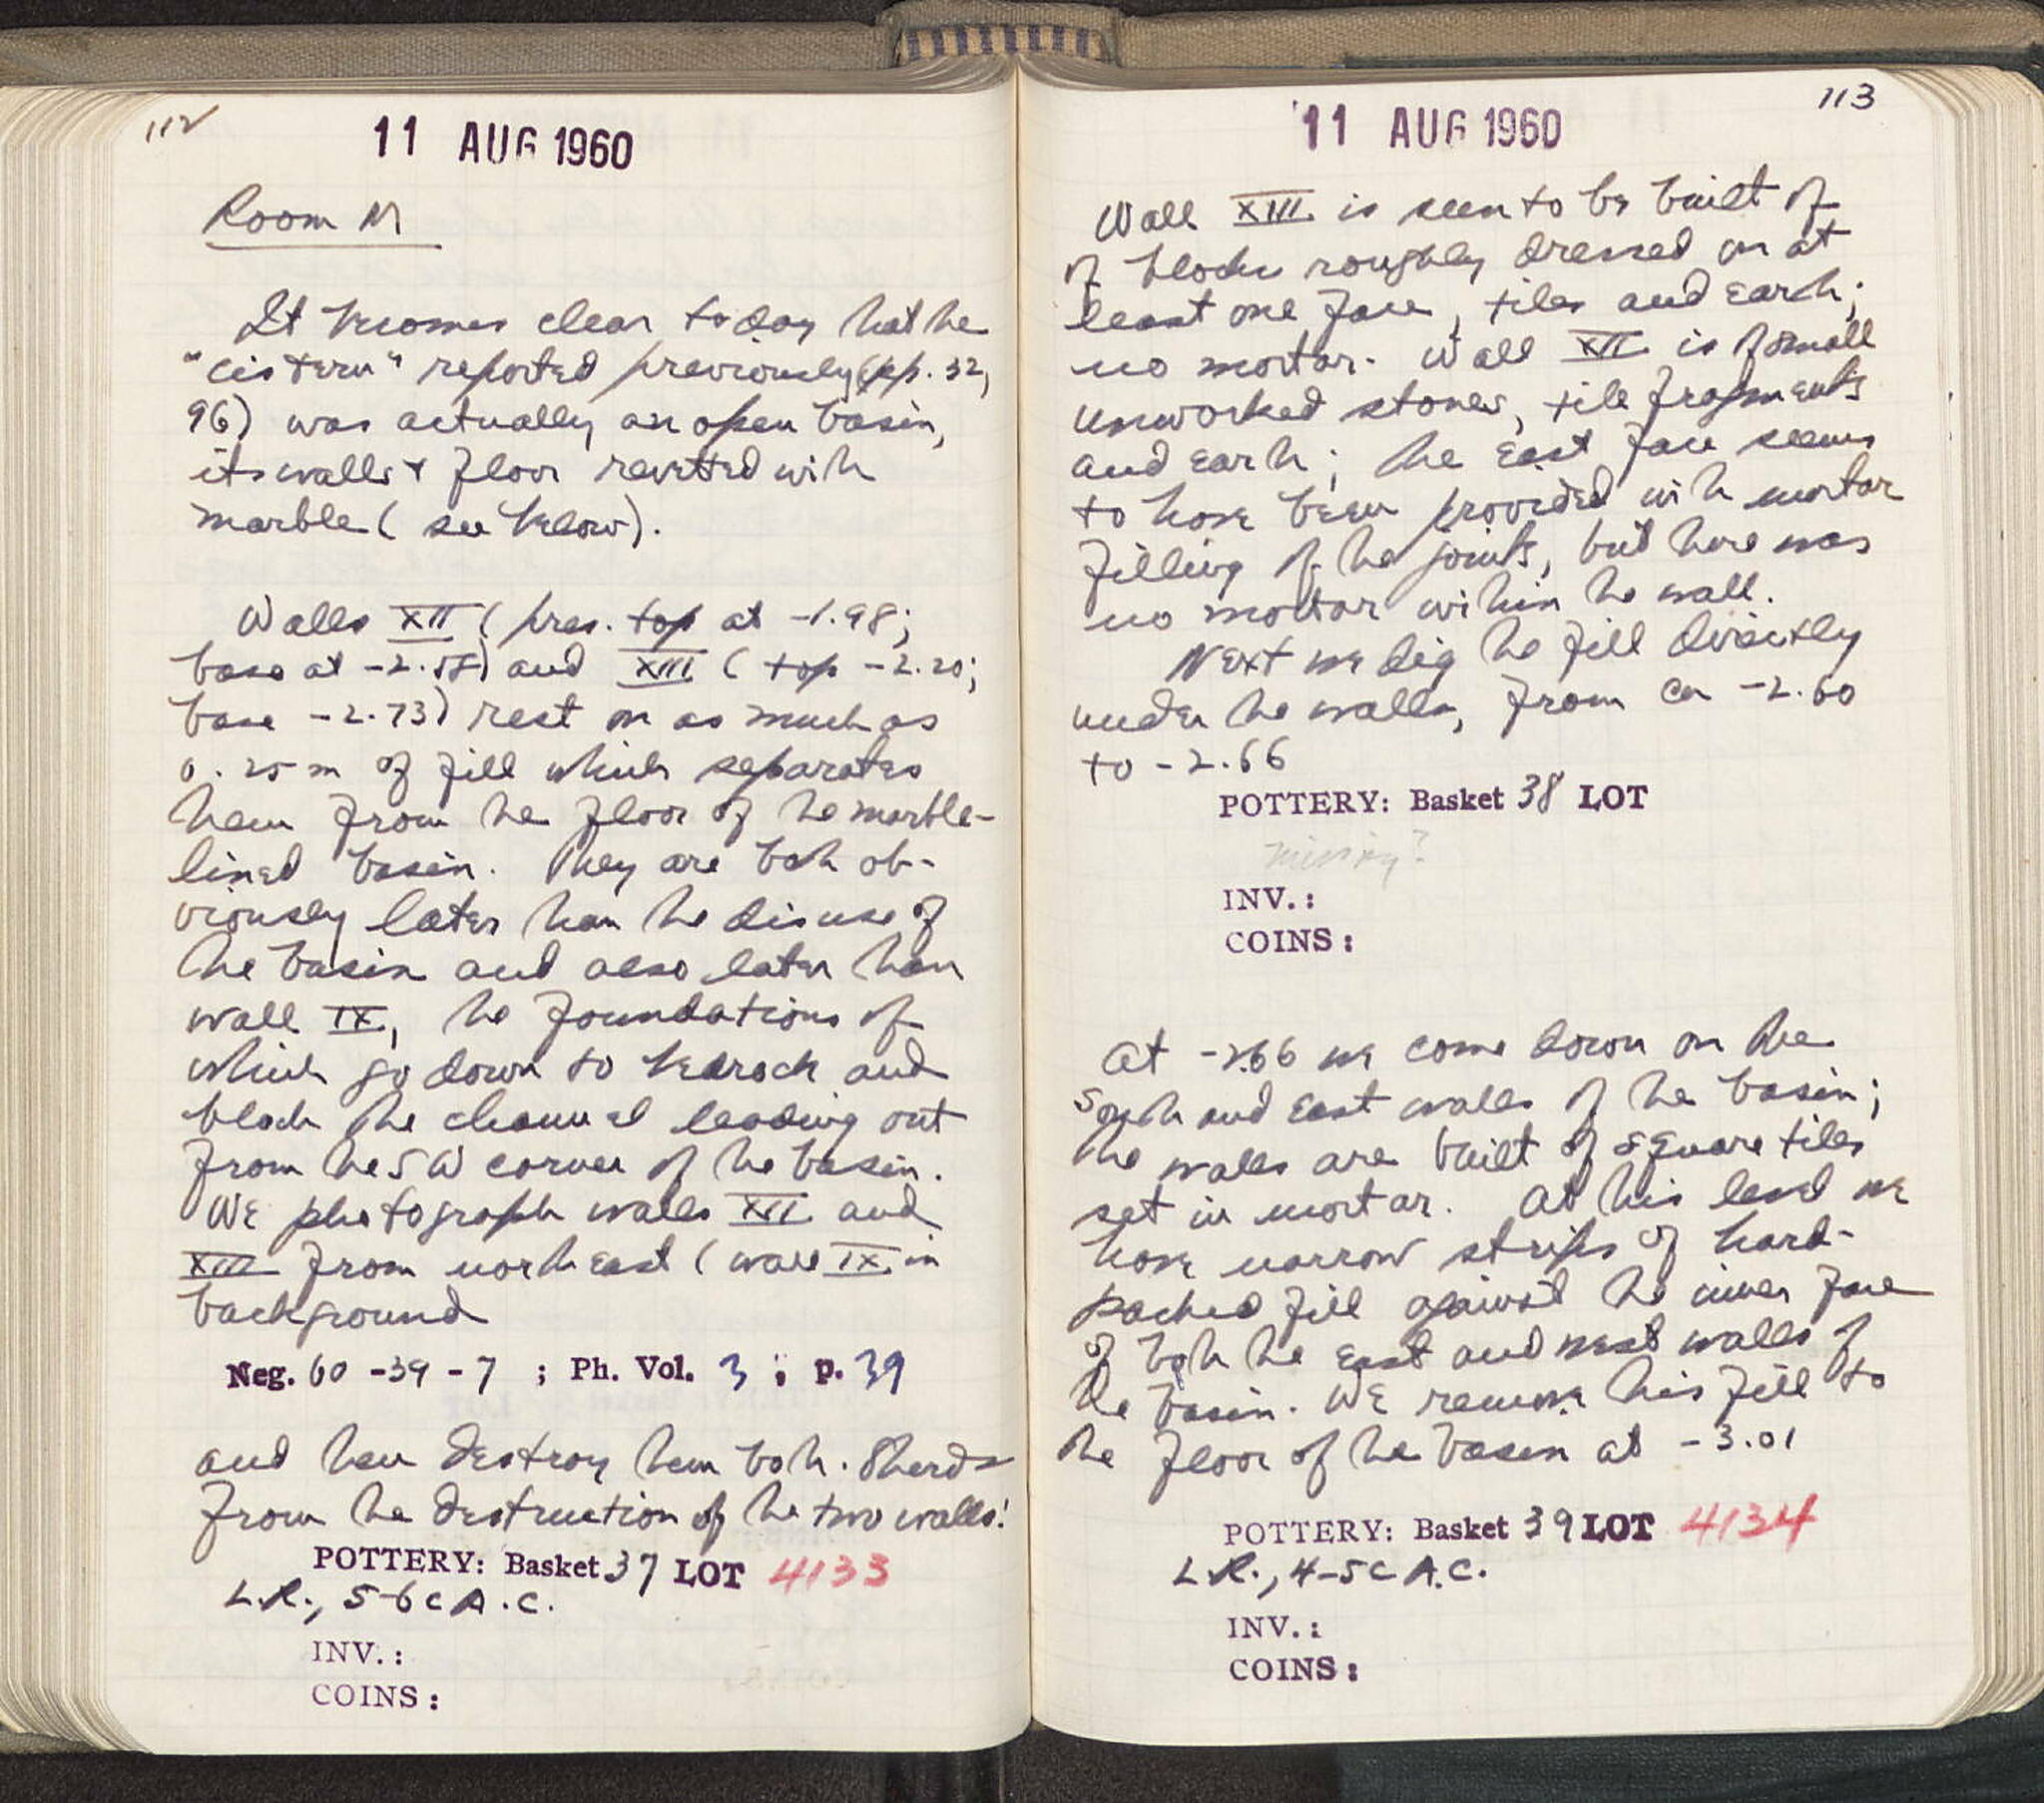 112
11 AUG 1960
Room M
It becomes clear today that the
"cistern" reported previously (pp. 32,
96) was actually an open basin,
its walls + floor revetted with
marble (see below).
Walls XII (pres. top at -1.98;
base at -2.58) and XIII (top -2.20;
base -2.73) rest on as much as
0.25 m of fill which separates
them from the floor of the marble-
lined basin. They are both ob-
viously later than the disuse of
the basin and also later than
wall IX, the foundations of
which go down to bedrock and
block the channel leading out
from the SW corner of the basin.
We photograph walls XII and
XIII from northeast (wall IX in
background
Neg. 60 -39 - 7 ; Ph. Vol. 3 ; p. 39
and then destroy them both. Sherds
from the destruction of the two walls:
POTTERY: Basket 37 LOT 4133
L.R., 5-6 c A.C.
INV.:
COINS:
113
11 AUG 1960
Wall XIII is seen to be built of
of blocks roughly dressed on at
least one face, tiles and earth;
no mortar. Wall XII is of small
unworked stones, tile fragments
and earth; the East face seems
to have been provided with mortar
filling of the joints, but there was
no mortar within the wall.
Next we dig the fill directly
under the walls, from ca -2.60
to -2.66
POTTERY: Basket 38 LOT
missing?
INV.:
COINS:
At -2.66 we come down on the
South and East walls of the basin;
the walls are built of square tiles
set in mortar. At this level we
have narrow strips of hard-
packed fill against the inner face
of both the east and west walls of
the basin. We remove this fill to
the floor of the basin at -3.01
POTTERY: Basket 39 LOT 4134
L.R., 4-5 c A.C.
INV.:
COINS: